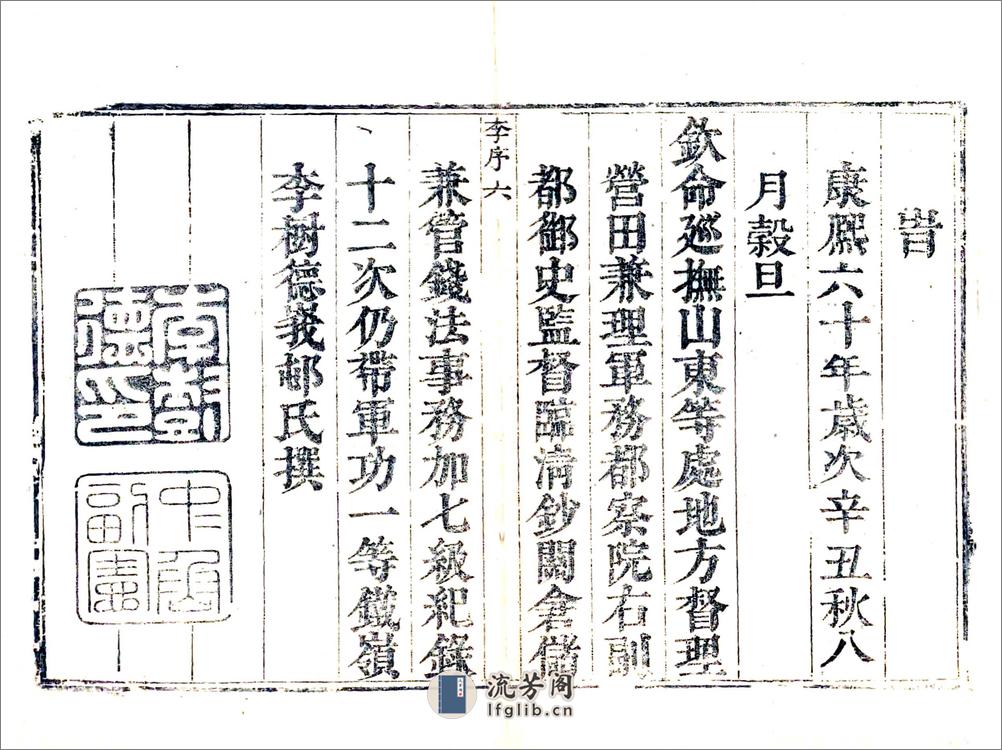 旹
康熙六十年歲次辛丑秋八
月穀旦
欽命廵撫山東等處地方督理
營田兼理軍務都察院右副
都御史監督臨清鈔關倉儲
李序 六
兼管錢法事務加七級紀錄
十二次仍帶軍功一等鐵嶺
李樹德莪邨氏撰
李樹德印
中丞副憲
流芳阁
lfglib.cn